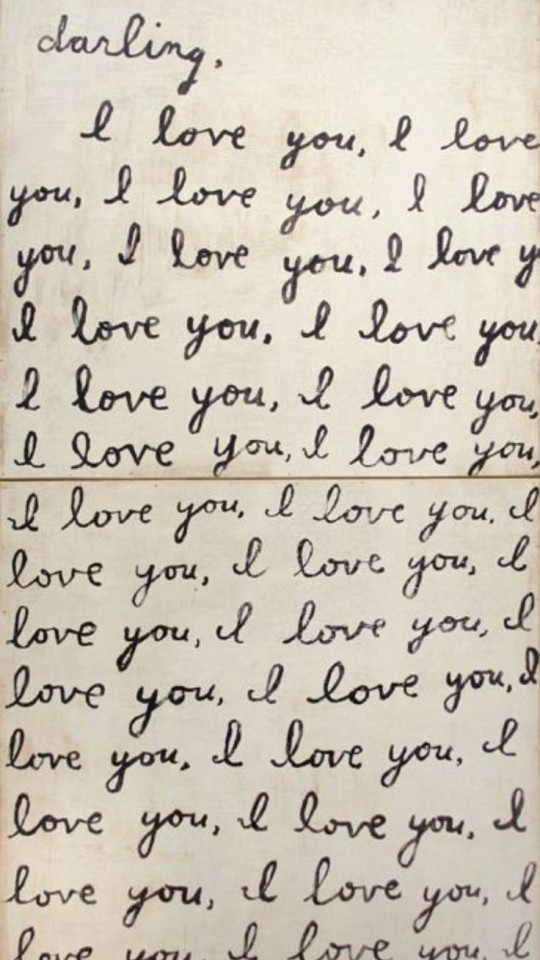 darling,
I love you, I love
you, I love you, I love
you, I love you, I love y
I love you, I love you,
I love you, I love you,
I love you, I love you,
I love you, I love you, I
love you, I love you, I
love you, I love you, I
love you, I love you, I
love you, I love you, I
love you, I love you, I
love you, I love you, I
love you, I love you, I